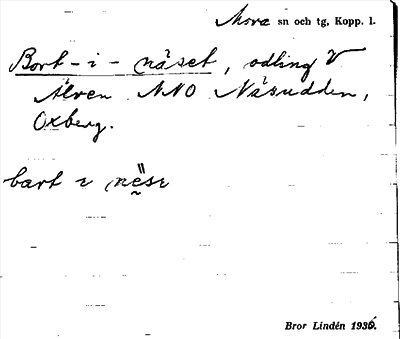 Mora sn och tg, Kopp. l.
Bort-i-näset, odling V
Älven NNO Näsudden,
Oxberg.
bart ɪ
Bror Lindén 1936.